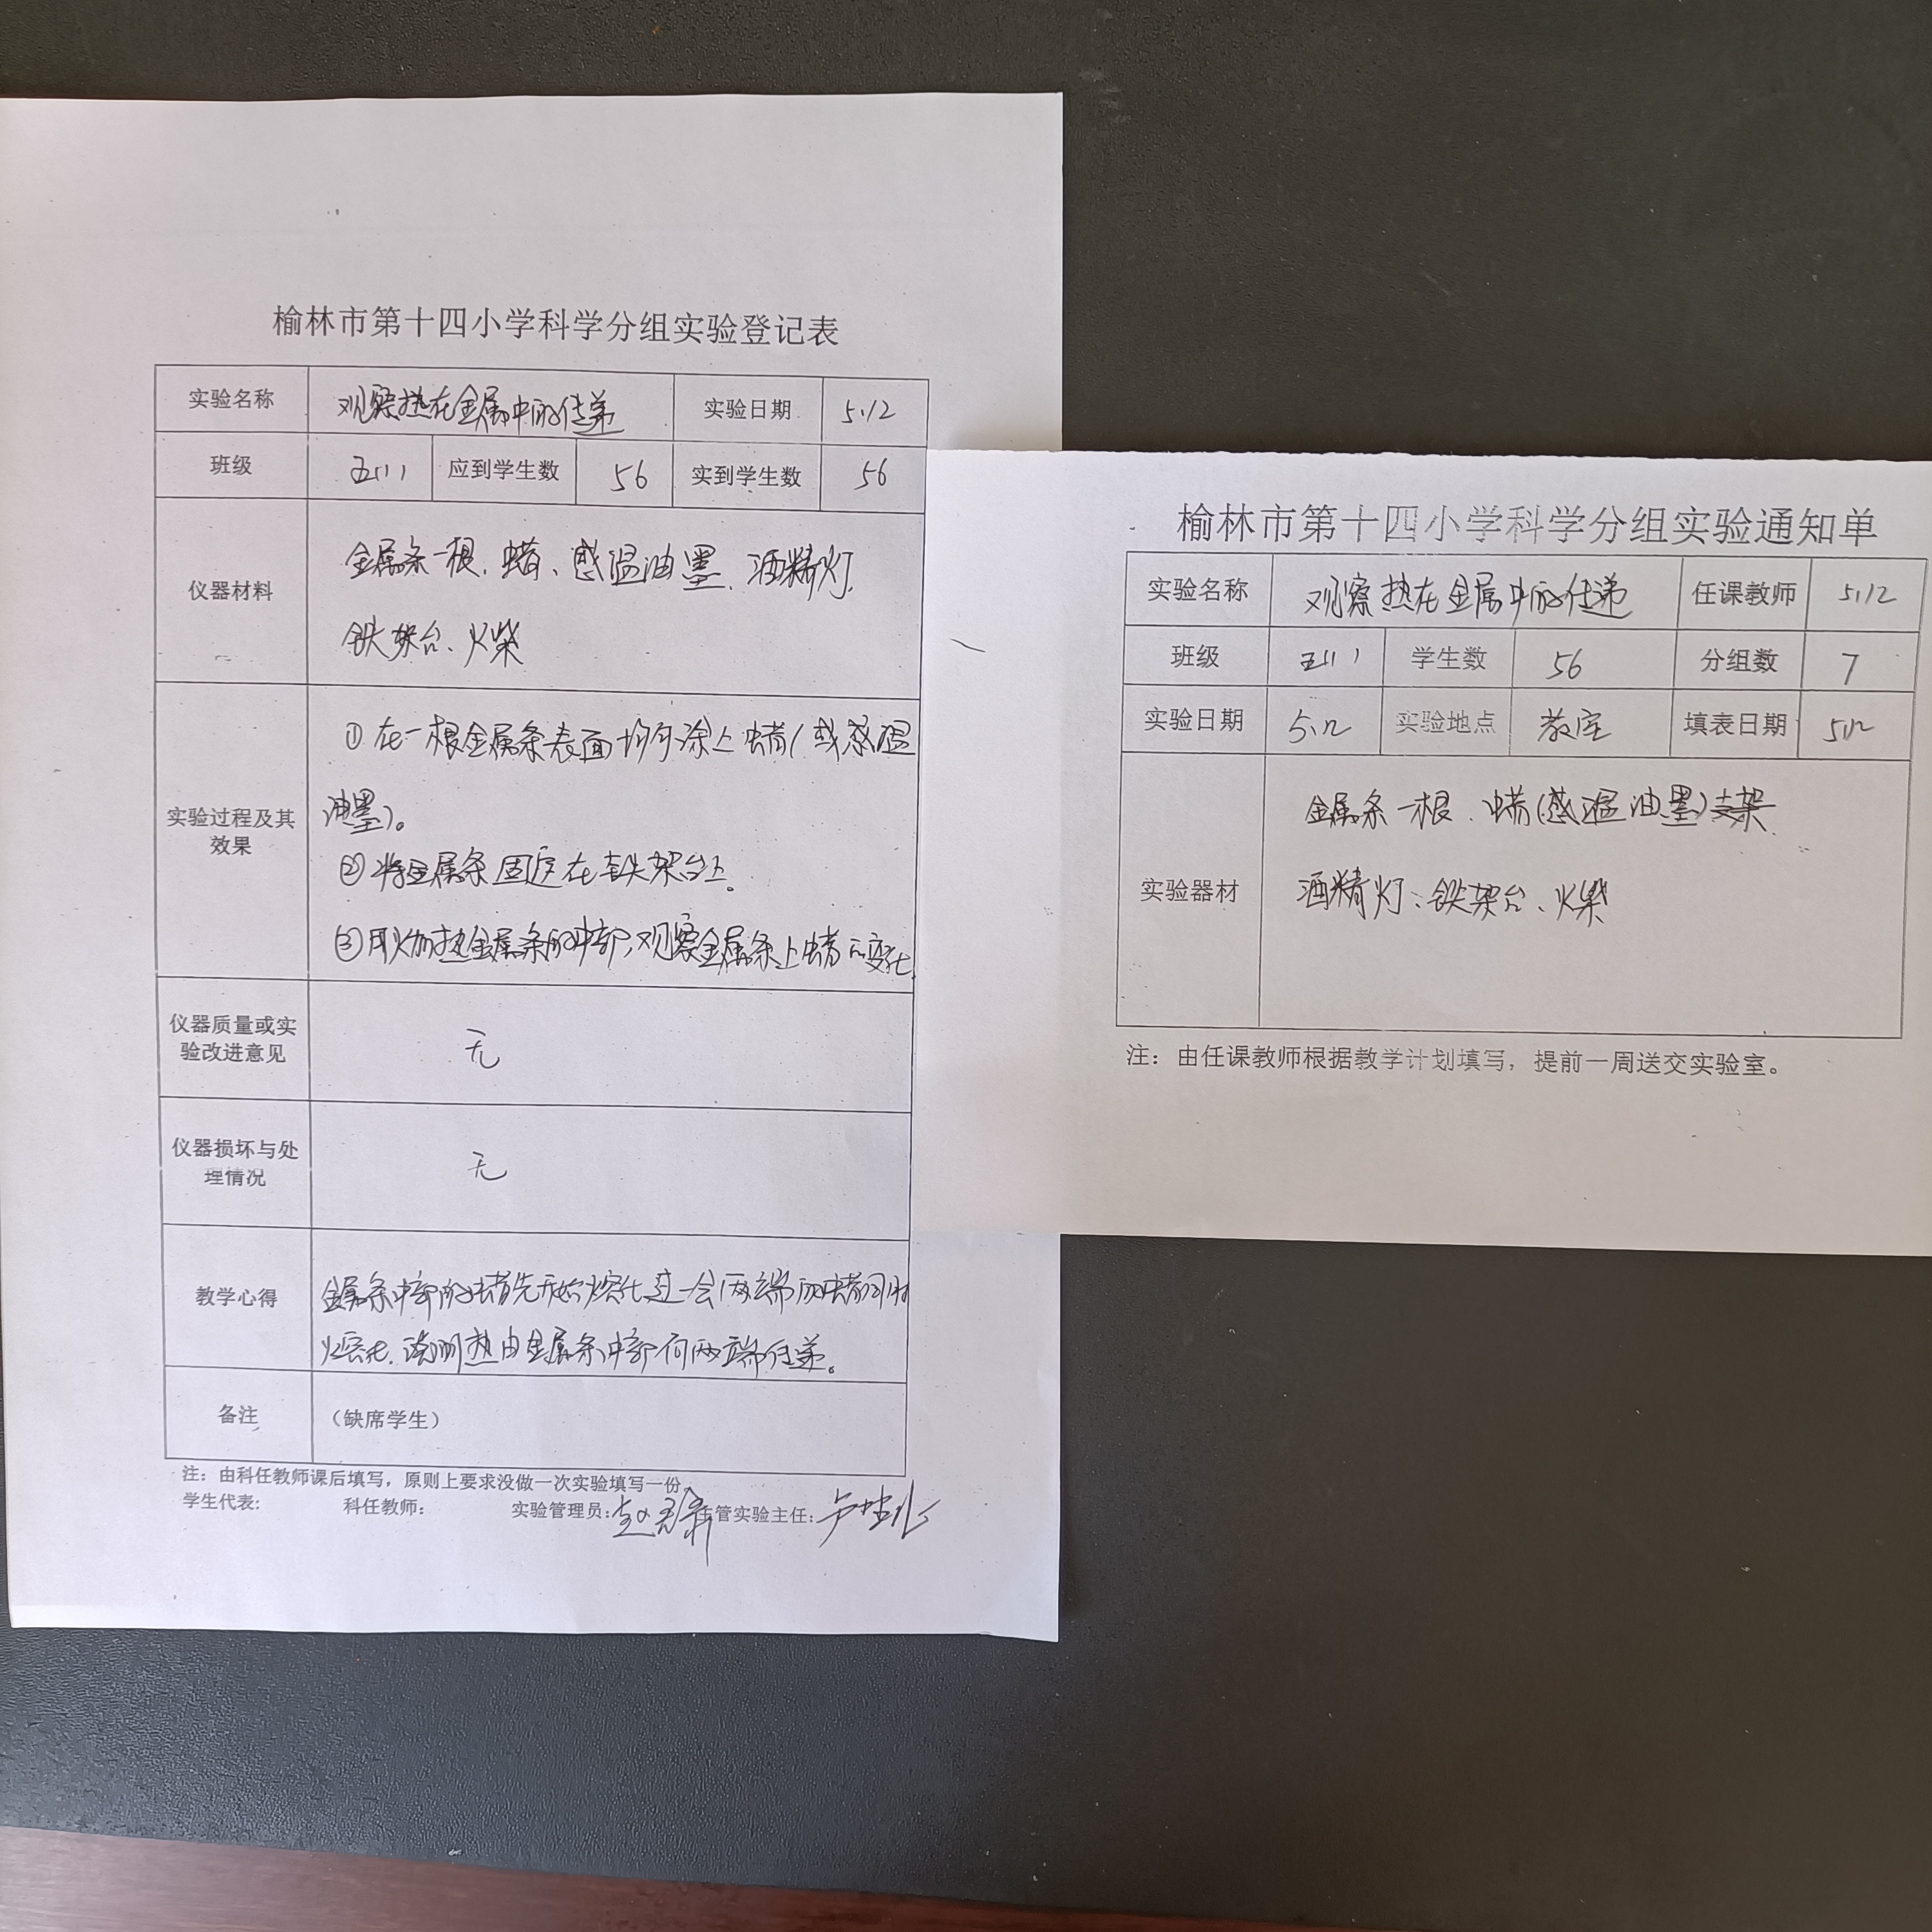 榆林市第十四小学科学分组实验登记表
实验名称 观察热在金属中的传递 实验日期 5.12
班级 五(1) 应到学生数 56 实到学生数 56
仪器材料
金属条一根、蜡、感温油墨、酒精灯、
铁架台、火柴
实验过程及其
效果
①在一根金属条表面均匀涂上蜡(或感温
油墨)。
②将金属条固定在铁架台上。
③用火加热金属条的中部,观察金属条上蜡的变化
仪器质量或实
验改进意见
无
仪器损坏与处
理情况
无
教学心得
金属条中部的蜡先开始熔化,过一会两端的蜡同时
熔化,说明热由金属条中部向两端传递。
备注 （缺席学生）
注：由科任教师课后填写，原则上要求没做一次实验填写一份
学生代表: 科任教师: 实验管理员: 主管实验主任:
榆林市第十四小学科学分组实验通知单
实验名称 观察热在金属中的传递 任课教师 5.12
班级 五(1) 学生数 56 分组数 7
实验日期 5.12 实验地点 教室 填表日期 5.12
实验器材
金属条一根、蜡(感温油墨)支架、
酒精灯、铁架台、火柴
注：由任课教师根据教学计划填写，提前一周送交实验室。